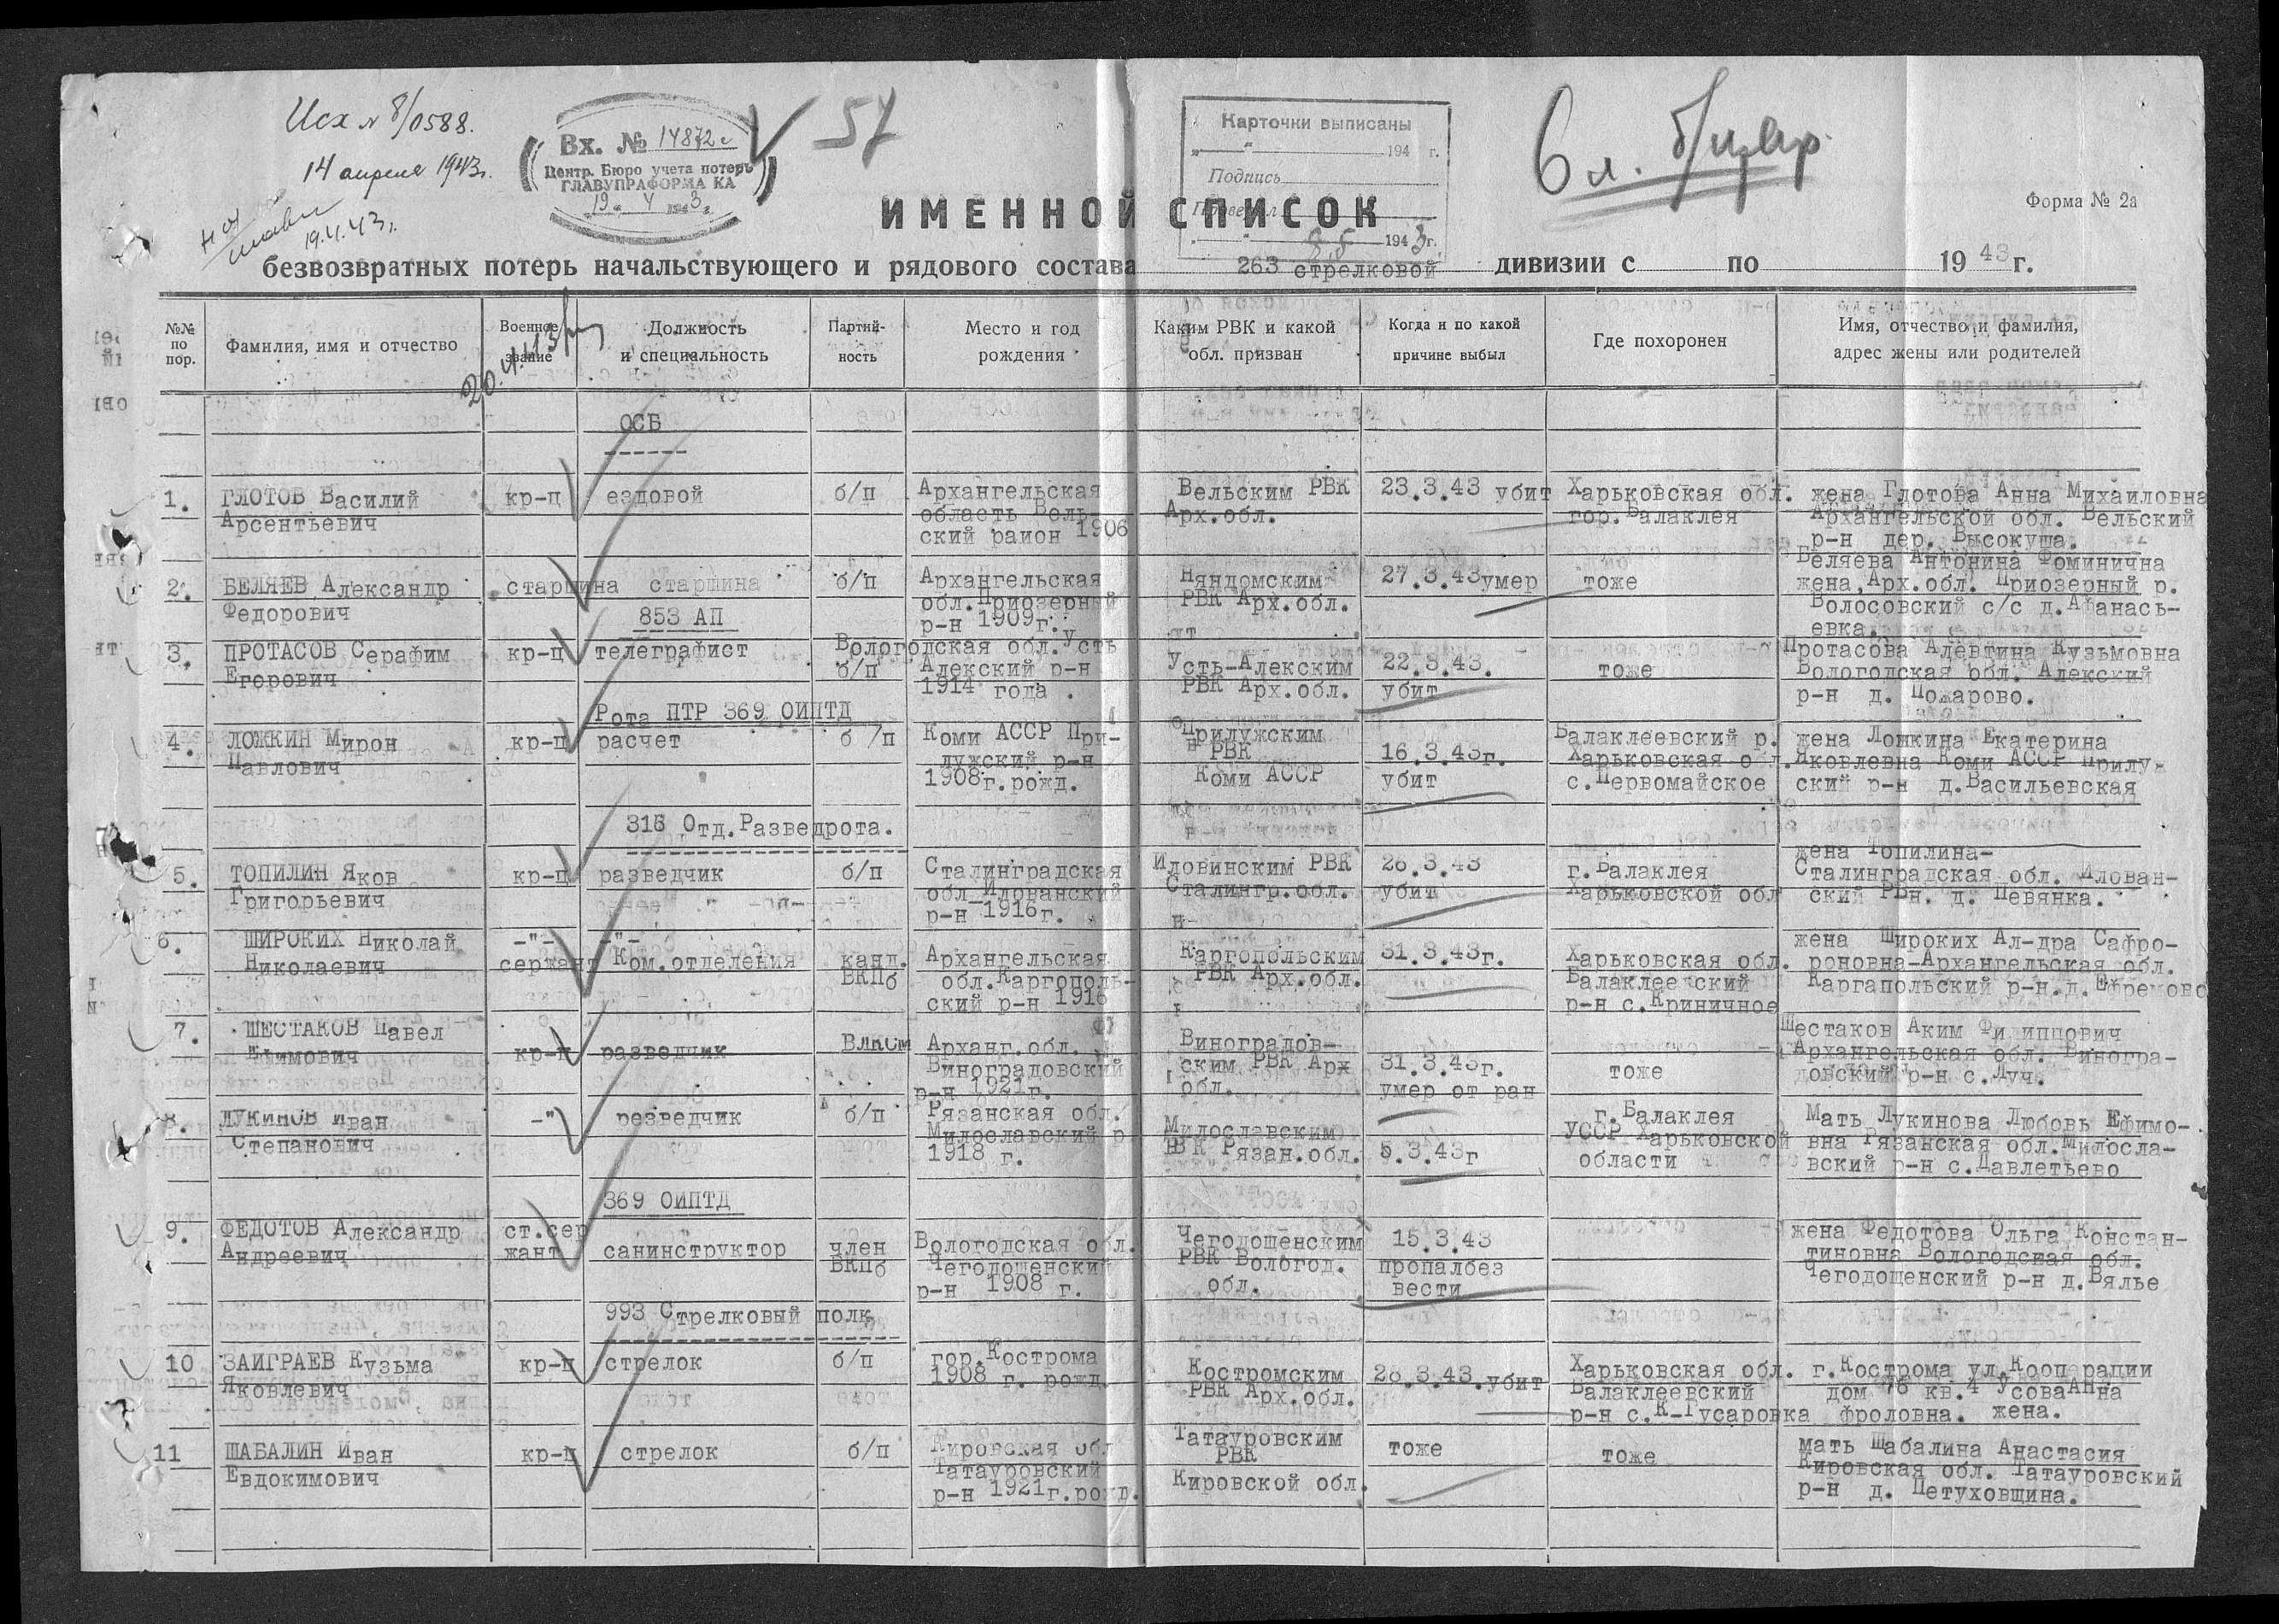 Исх № 8/0588.
14 апреля 1943г.
19.4.43г.
Вх. № 14872с
Центр. Бюро учета потерь
ГЛАВУПРАФОРМА КА
"19" 4 1943г.
57
Карточки выписаны
"___" ______ 194 г.
Подпись
Проверил
8.5 1943г.
6 л.
Форма № 2а
ИМЕННОЙ СПИСОК
безвозвратных потерь начальствующего и рядового состава 263 стрелковой дивизии с ____ по ____ 1943 г.
20.4.43
№№ по пор.
Фамилия, имя и отчество
Военное звание
Должность и специальность
Партий-ность
Место и год рождения
Каким РВК и какой обл. призван
Когда и по какой причине выбыл
Где похоронен
Имя, отчество и фамилия, адрес жены или родителей
ОСБ
1. ГЛОТОВ Василий кр-ц ездовой б/п Архангельская Вельским РВК 23.3.43 убит Харьковская обл. жена Глотова Анна Михаиловна
Арсентьевич область Вель- Арх.обл. гор.Балаклея Архангельской обл. Вельский
ский раион 1906 р-н дер. Высокуша.
2. БЕЛЯЕВ Александр старшина старшина б/п Архангельская Няндомским 27.3.43умер тоже Беляева Антонина Фоминична
Федорович обл.Приозерный РВК Арх.обл. жена,Арх.обл. Приозерный р.
р-н 1909г. Волосовский с/с д.Афанась-
евка.
853 АП
3. ПРОТАСОВ Серафим кр-ц телеграфист Вологодская обл.Усть Протасова Алевтина Кузьмовна
Егорович б/п Алекский р-н Усть-Алекским 22.3.43. тоже Вологодская обл. Алекский
1914 года . РВК Арх.обл. убит р-н д. Пожарово.
Рота ПТР 369 ОИПТД
4. ЛОЖКИН Мирон кр-ц расчет б/п Коми АССР При- Прилужским Балаклеевский р. жена Ложкина Екатерина
Павлович лужский р-н РВК 16.3.43г. Харьковская обл. Яковлевна Коми АССР Прилу-
1908г.рожд. Коми АССР убит с.Первомайское ский р-н д.Васильевская
316 Отд.Разведрота.
5. ТОПИЛИН Яков кр-ц разведчик б/п Сталинградская Иловинским РВК 26.3.43 г.Балаклея жена Топилина-
Григорьевич обл Илованский Сталингр.обл. убит Харьковской обл Сталинградская обл. Илован-
р-н 1916г. ский РВн. д. Певянка.
6. ШИРОКИХ Николай -"- -"- жена Широких Ал-дра Сафро-
Николаевич сержант Ком.отделения канд. Архангельская Каргопольским 31.3.43г. Харьковская обл. роновна-Архангельская обл.
ВКПб обл.Каргополь- РВК Арх.обл. Балаклеевский Каргапольский р-н.д.Ефремово
ский р-н 1916 р-н с.Криничное
7. ШЕСТАКОВ Павел Шестаков Аким Филиппович
Акимович кр-ц разведчик Влксм Арханг.обл. Виноградов- Архангельская обл. Виногра-
Виноградовский ским РВК Арх 31.3.43г. тоже довский р-н с.Луч.
р-н 1921г. обл. умер от ран
8. ЛУКИНОВ Иван -"- резведчик б/п Рязанская обл. г.Балаклея Мать Лукинова Любовь Ефимо-
Степанович Милославский р Милославским УССР Харьковской вна Рязанская обл.Милосла-
1918 г. РВК Рязан.обл. 5.3.43г области вский р-н с.Давлетьево
369 ОИПТД
9. ФЕДОТОВ Александр ст.сер жена Федотова Ольга Констан-
Андреевич жант санинструктор член Вологодская обл. Чегодощенским 15.3.43 тиновна Вологодская обл.
ВКПб Чегодощенский РВК Вологод. пропалбез Чегодощенский р-н д.Вялье
р-н 1908 г. обл. вести
993 Стрелковый полк
10 ЗАИГРАЕВ Кузьма кр-ц стрелок б/п гор.Кострома Костромским 28.3.43.убит Харьковская обл. г.Кострома ул.Кооперации
Яковлевич 1908 г. рожд. РВК Арх.обл. Балаклеевский дом 76 кв.4 УсоваАнна
р-н с.К-Гусаровка фроловна. жена.
11 ШАБАЛИН Иван кр-ц стрелок б/п Кировская обл Татауровским тоже тоже мать Шабалина Анастасия
Евдокимович Татауровский РВК Кировская обл. Татауровский
р-н 1921г.рожд. Кировской обл. р-н д. Петуховщина.